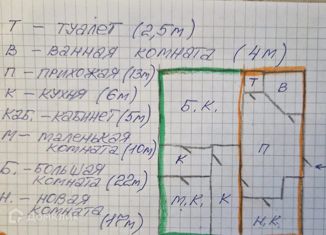 Т – ТУАЛЕТ (2,5м)
В – ВАННАЯ КОМНАТА (4м)
П – ПРИХОЖАЯ (13м)
К – КУХНЯ (6м)
КАБ. – КАБИНЕТ (5м)
М – МАЛЕНЬКАЯ
КОМНАТА (10м)
Б. – БОЛЬШАЯ
КОМНАТА (22м)
Н. – НОВАЯ
КОМНАТА
(17м)
Т
В
Б.К.
П
К
М.К.
К
Н.К.